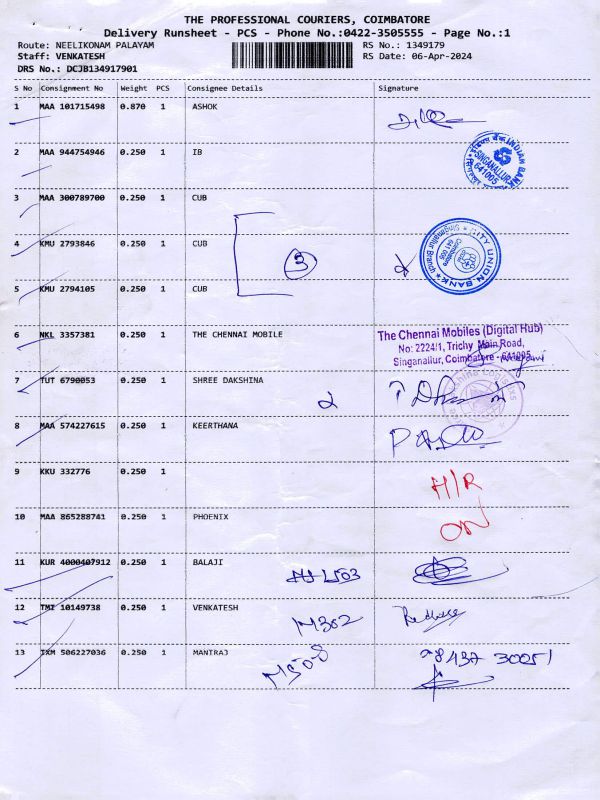 THE PROFESSIONAL COURIERS, COIMBATORE
Delivery Runsheet - PCS - Phone No.:0422-3505555 - Page No.:1
Route: NEELIKONAM PALAYAM
RS No.: 1349179
Staff: VENKATESH
RS Date: 06-Apr-2024
DRS No.: DCJB134917901
S No Consignment No Weight PCS Consignee Details Signature
1 MAA 101715498 0.870 1 ASHOK
2 MAA 944754946 0.250 1 IB
INDIAN BANK
SINGANALLUR
641005
3 MAA 300789700 0.250 1 CUB
4 KMU 2793846 0.250 1 CUB
3
CITY UNION BANK
Singanallur Branch
Coimbatore
641 005
5 KMU 2794105 0.250 1 CUB
6 NKL 3357381 0.250 1 THE CHENNAI MOBILE
The Chennai Mobiles (Digital Hub)
No: 2224/1, Trichy Main Road,
Singanallur, Coimbatore - 641005
7 TUT 6790053 0.250 1 SHREE DAKSHINA
2
8 MAA 574227615 0.250 1 KEERTHANA
9 KKU 332776 0.250 1
H/R
10 MAA 865288741 0.250 1 PHOENIX
ON
11 KUR 4000407912 0.250 1 BALAJI
12 TMI 10149738 0.250 1 VENKATESH
M302
13 TXM 506227036 0.250 1 MANTRAJ
M508